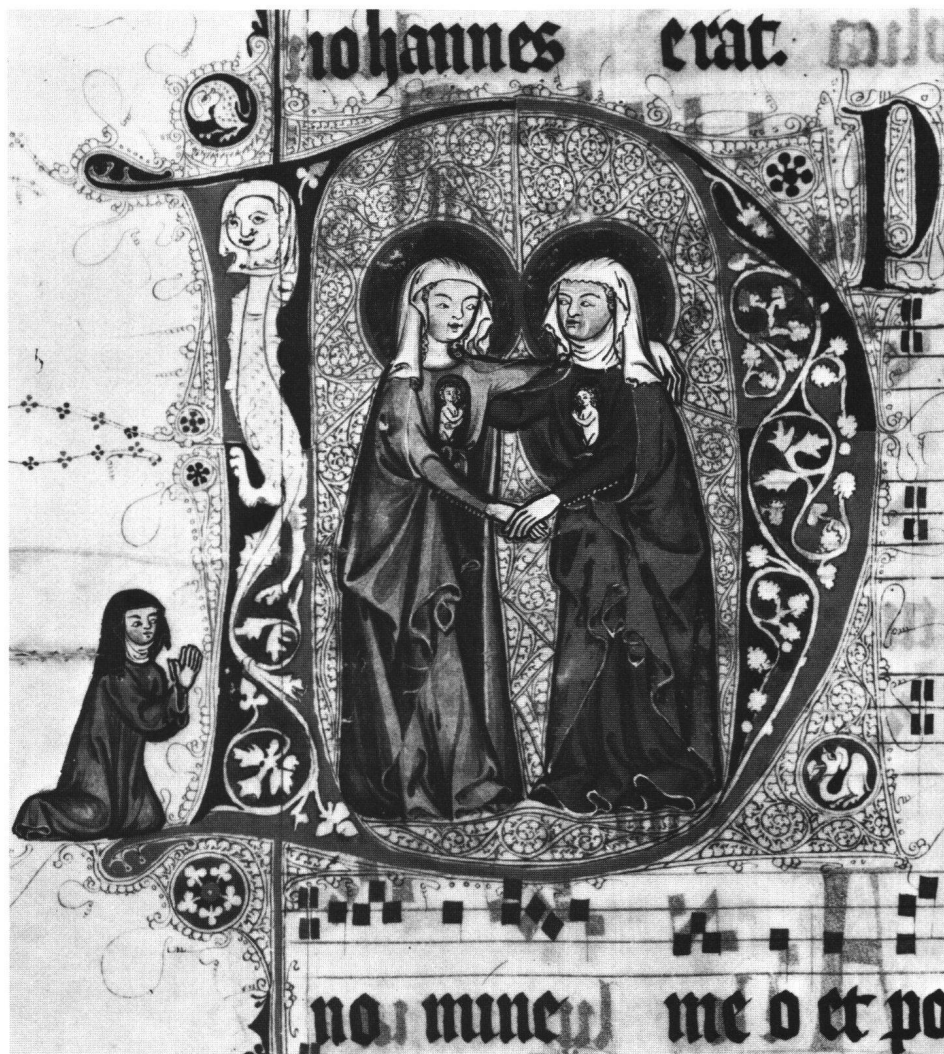 iohannes erat.
D
no mine me o et po